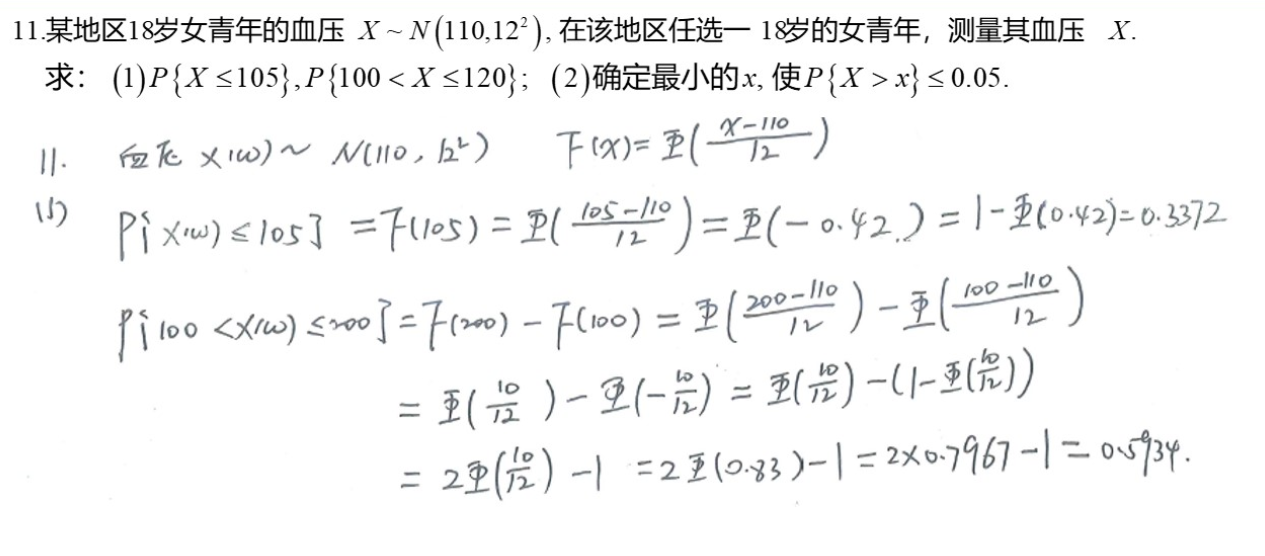 11.某地区18岁女青年的血压 X ~ N(110,12²), 在该地区任选一 18岁的女青年，测量其血压 X.
求： (1)P{X ≤105},P{100 < X ≤120}； (2)确定最小的x, 使P{X > x} ≤ 0.05.
11. 血压 X(ω) ~ N(110, 12²) F(x)= Φ( (x-110)/12 )
(1) P{X(ω) ≤ 105} = F(105) = Φ( (105-110)/12 ) = Φ(-0.42.) = 1-Φ(0.42)= 0.3372
P{100 < X(ω) ≤ 200} = F(200) - F(100) = Φ( (200-110)/12 ) - Φ( (100-110)/12 )
= Φ( 10/12 ) - Φ(- 10/12 ) = Φ( 10/12 ) - (1-Φ( 10/12 ))
= 2Φ( 10/12 ) - 1 = 2Φ(0.83)-1 = 2×0.7967-1 = 0.5934.